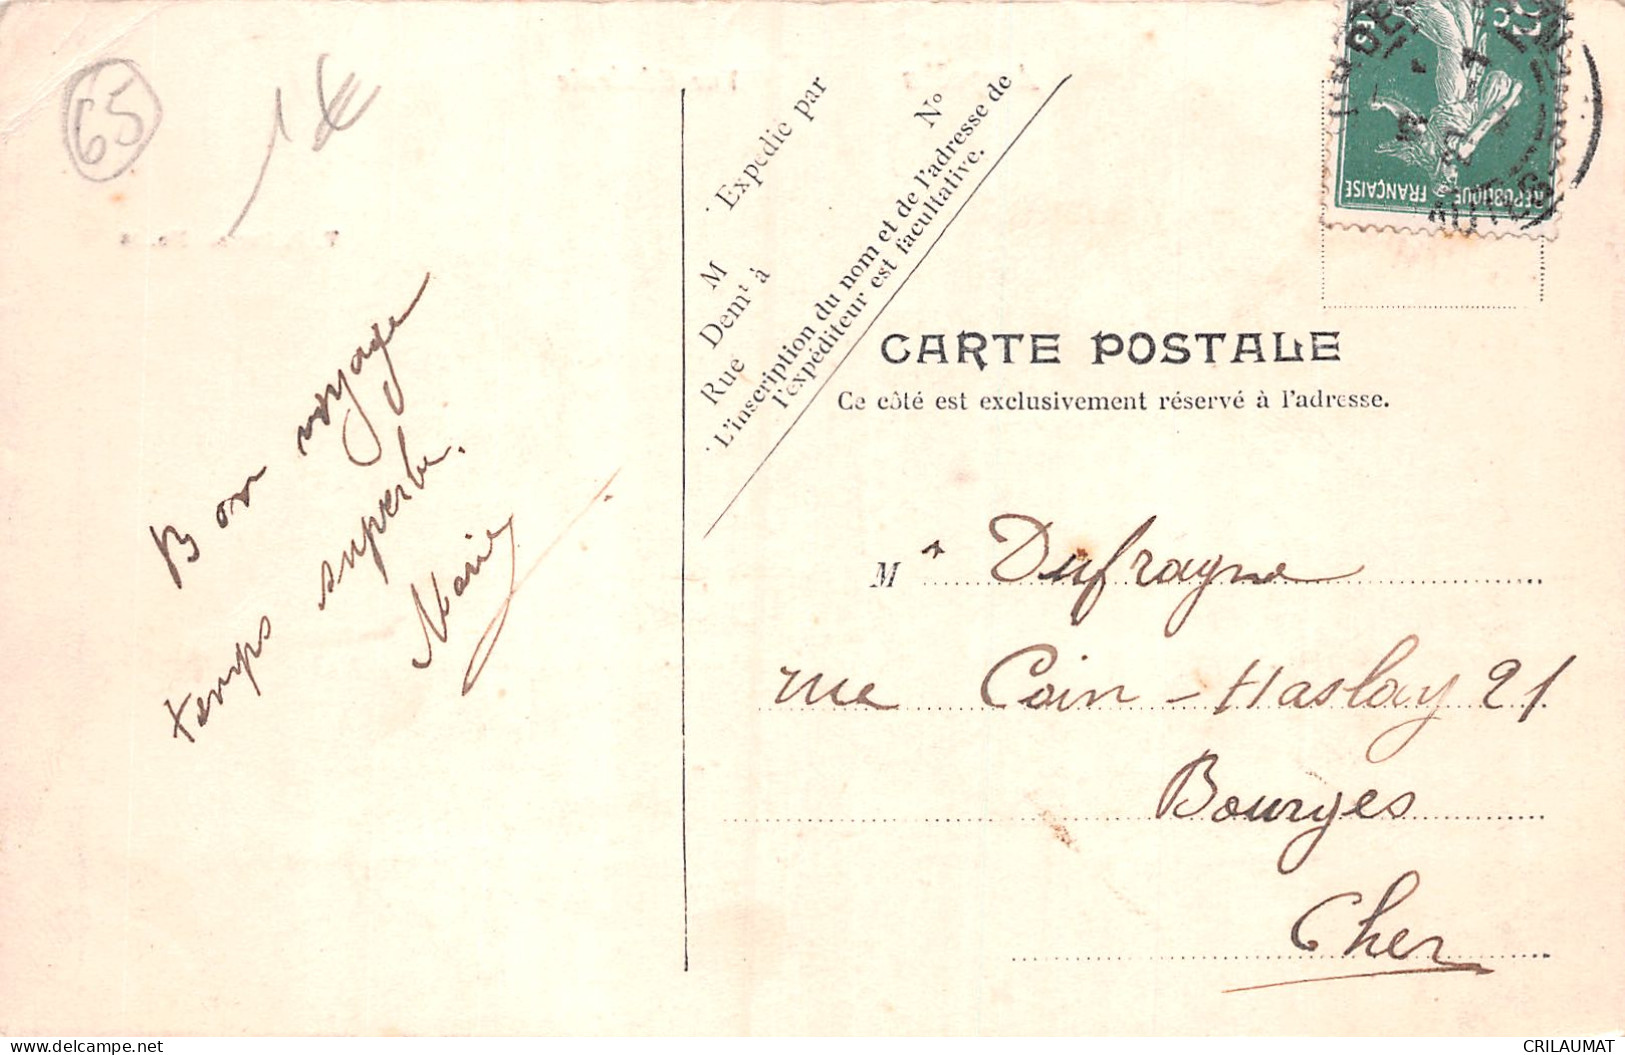 65
1€
Bon voyage
temps superbe.
Marie
Expédie par
M
N°
Demt à
Rue
L'inscription du nom et de l'adresse de
l'expéditeur est facultative.
REPUBLIQUE FRANÇAISE
CARTE POSTALE
Ce côté est exclusivement réservé à l'adresse.
M Dufrayne
rue Coin-Haslay 21
Bourges
Cher
CRILAUMAT
delcampe.net